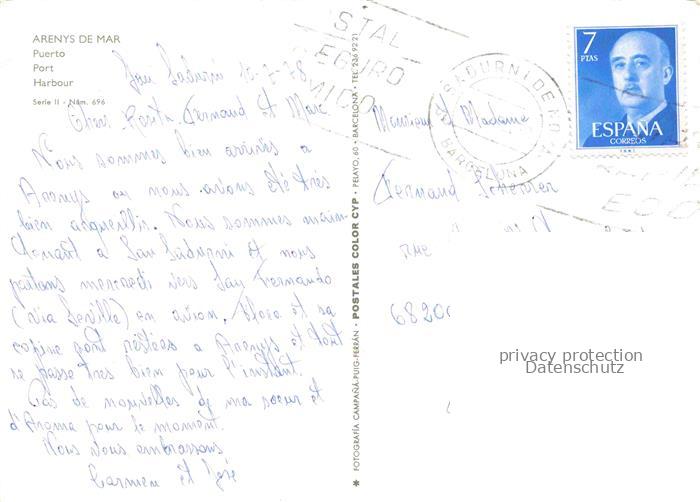 ARENYS DE MAR
Puerto
Port
Harbour
Serie II - Núm. 696
San Sadurni 12-7-78
Chers Fernand et Marc
Nous sommes bien arrivés a
Arenys ou nous avions été très
bien acqueillis. Nous sommes main-
tenant a San Sadurni et nous
partons mercredi vers San Fernando
(via Seville) en avion. et sa
copine sont restées a Arenys et tout
se passe très bien pour l'instant.
Pas de nouvelles de ma soeur et
d' pour le moment.
Nous vous embrassons
Carmen et José
FOTOGRAFÍA CAMPAÑÁ-PUIG-FERRÁN · POSTALES COLOR CYP · PELAYO, 60 · BARCELONA · TEL. 236 92 21
STAL
MICO
BARCELONA
7
PTAS
ESPAÑA
CORREOS
Monsieur et Madame
Fernand
rue
6820
privacy protection
Datenschutz